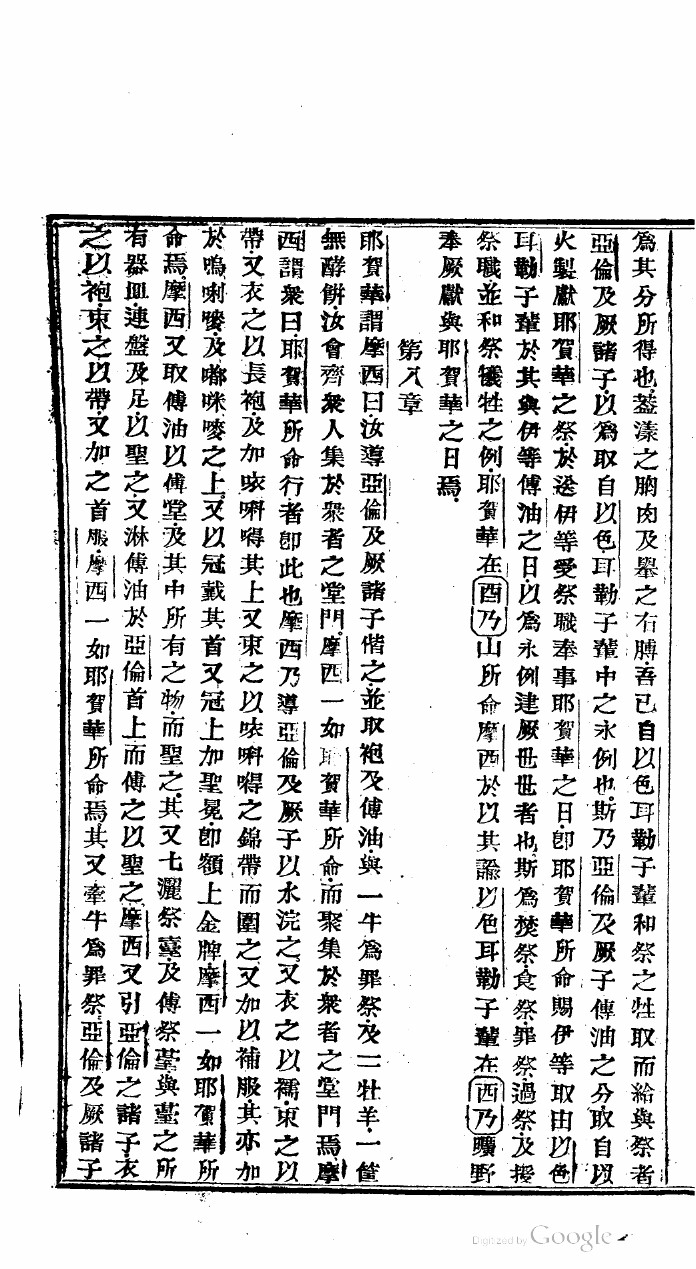 爲其分所得也葢漾之胸肉及擧之右膊吾已自以色耳勒子輩和祭之牲取而給與祭者
亞倫及厥諸子以爲取自以色耳勒子輩中之永例也斯乃亞倫及厥子傅油之分取自以
火製獻耶賀華之祭於送伊等受祭職奉事耶賀華之日卽耶賀華所命賜伊等取由以色
耳勒子輩於其與伊等傅油之日以爲永例建厥世世者也斯爲焚祭食祭罪祭過祭及授
祭職並和祭犧牲之例耶賀華在西乃山所命摩西於以其諭以色耳勒子輩在西乃曠野
奉厥獻與耶賀華之日焉
第八章
耶賀華謂摩西曰汝導亞倫及厥諸子偕之並取袍及傅油與一牛爲罪祭及二牡羊一筐
無酵餅汝會齊衆人集於衆者之堂門摩西一如耶賀華所命而聚集於衆者之堂門焉摩
西謂衆曰耶賀華所命行者卽此也摩西乃導亞倫及厥子以水浣之又衣之以襦束之以
帶又衣之以長袍及加咉㖑㗶其上又束之以咉㖑㗶之錦帶而圍之又加以補服其亦加
於嗚唎嘜及嘟咪嘜之上又以冠戴其首又冠上加聖冕卽額上金牌摩西一如耶賀華所
命焉摩西又取傅油以傅堂及其中所有之物而聖之其又七灑祭臺及傅祭臺與臺之所
有器皿連盤及足以聖之又淋傅油於亞倫首上而傅之以聖之摩西又引亞倫之諸子衣
之以袍束之以帶又加之首服摩西一如耶賀華所命焉其又牽牛爲罪祭亞倫及厥諸子
Digitized by Google